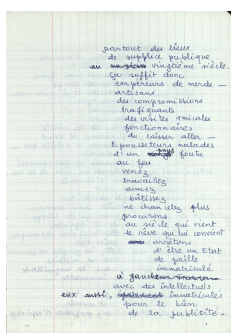 partout des lieux
de supplice publique
au vingtième siècle.
ça suffit donc
empereurs de merde —
artisans
des compromissions
trafiquants
des visites amicales
fonctionnaires
du laisser aller —
Epousseteurs malades
d'un pays foutu
au feu
venez
travaillez
aimez
bâtissez
ne chancelez plus
procurons
au siècle qui vient
le rêve qui lui convient
arrêtons
d'être un Etat
de paille
immatriculé
à gauche
avec des intellectuels
eux aussi, immatriculés
pour le bien
de la publicité.